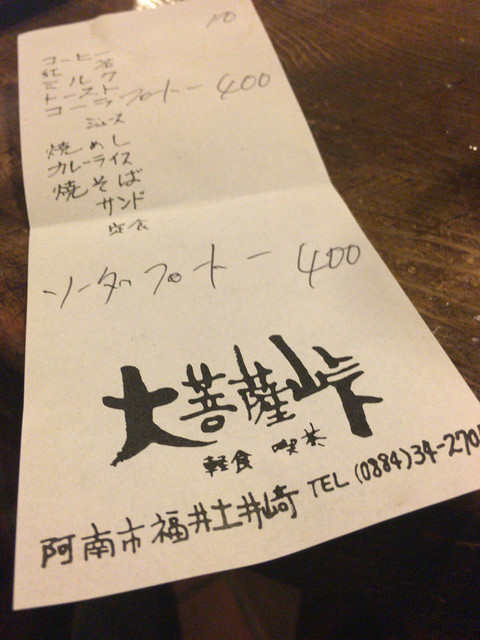 10
コーヒー
紅茶
ミルク
トースト
コーラ フロート 400
ジュース
焼めし
カレーライス
焼そば
サンド
定食
ソーダフロート 400
大菩薩峠
軽食 喫茶
阿南市福井土井崎 TEL (0884)34-270